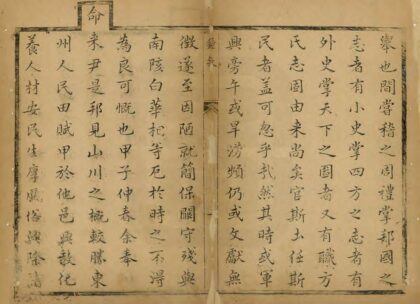 舉也間嘗稽之周禮掌邦國之
志者有小史掌四方之志者有
外史掌天下之圖者又有職方
氏志固由來尚矣官斯土任斯
民者盖可忽乎哉然其時或軍
興旁午或旱澇頻仍或文獻無
徵遂至因陋就簡保闗守殘與
南陔白華等厄於時之不淂
為良可慨也甲子仲春余奉
命
来尹是邦見山川之較勝東
州人民田賦甲於他邑興敎化
養人材安民生厚風俗興隆諸